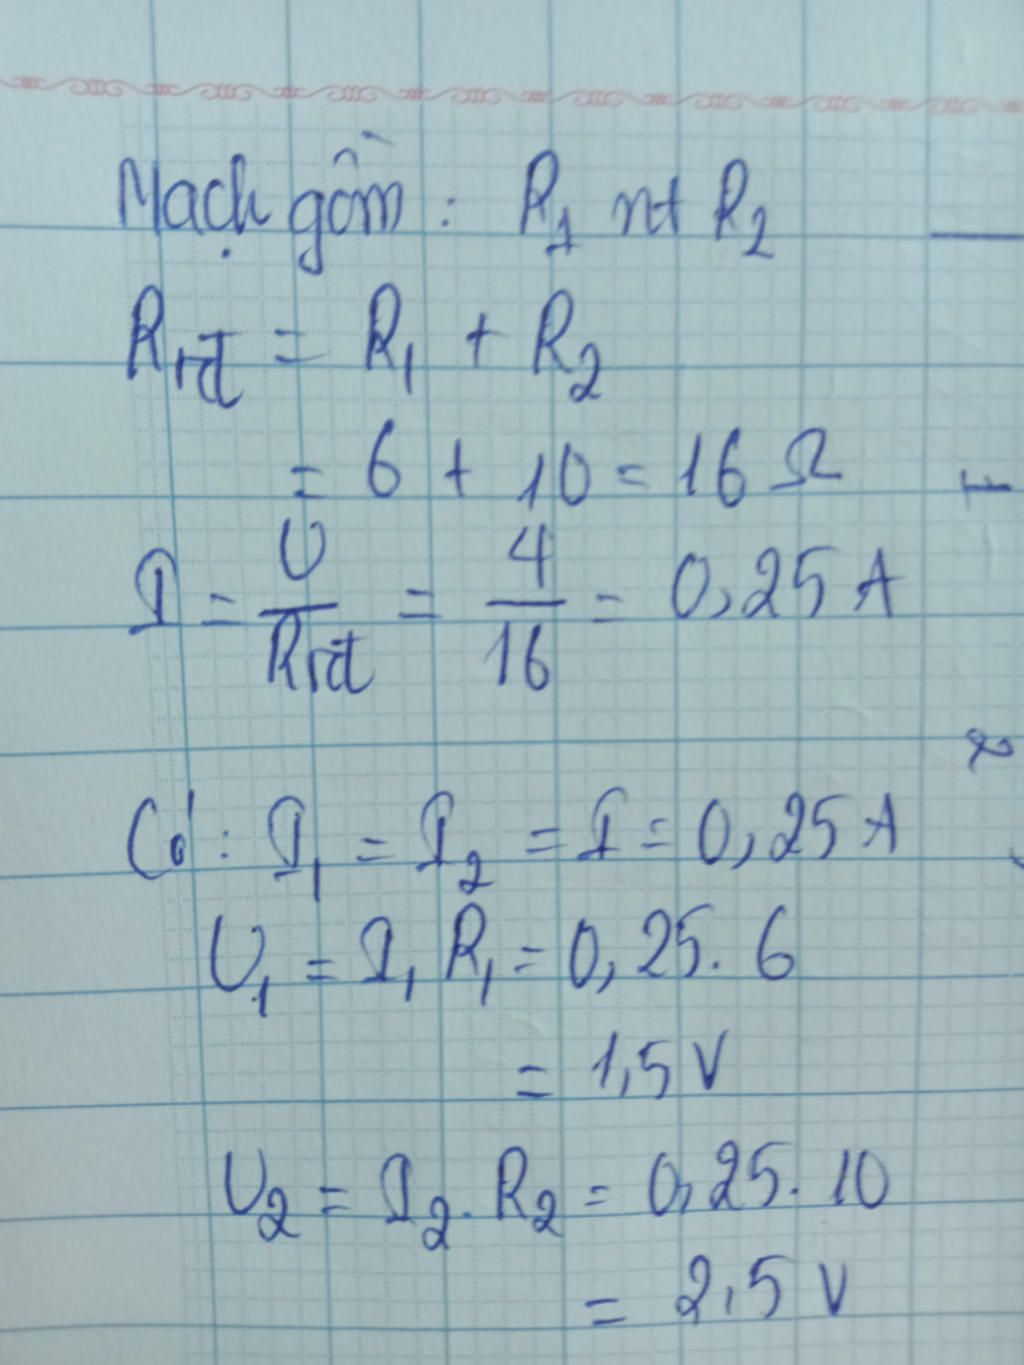 Mạch gồm: R₁ nt R₂
Rtđ = R₁ + R₂
= 6 + 10 = 16 Ω
I = U/Rtđ = 4/16 = 0,25 A
Có: I₁ = I₂ = I = 0,25 A
U₁ = I₁ R₁ = 0,25. 6
= 1,5 V
U₂ = I₂. R₂ = 0,25. 10
= 2,5 V